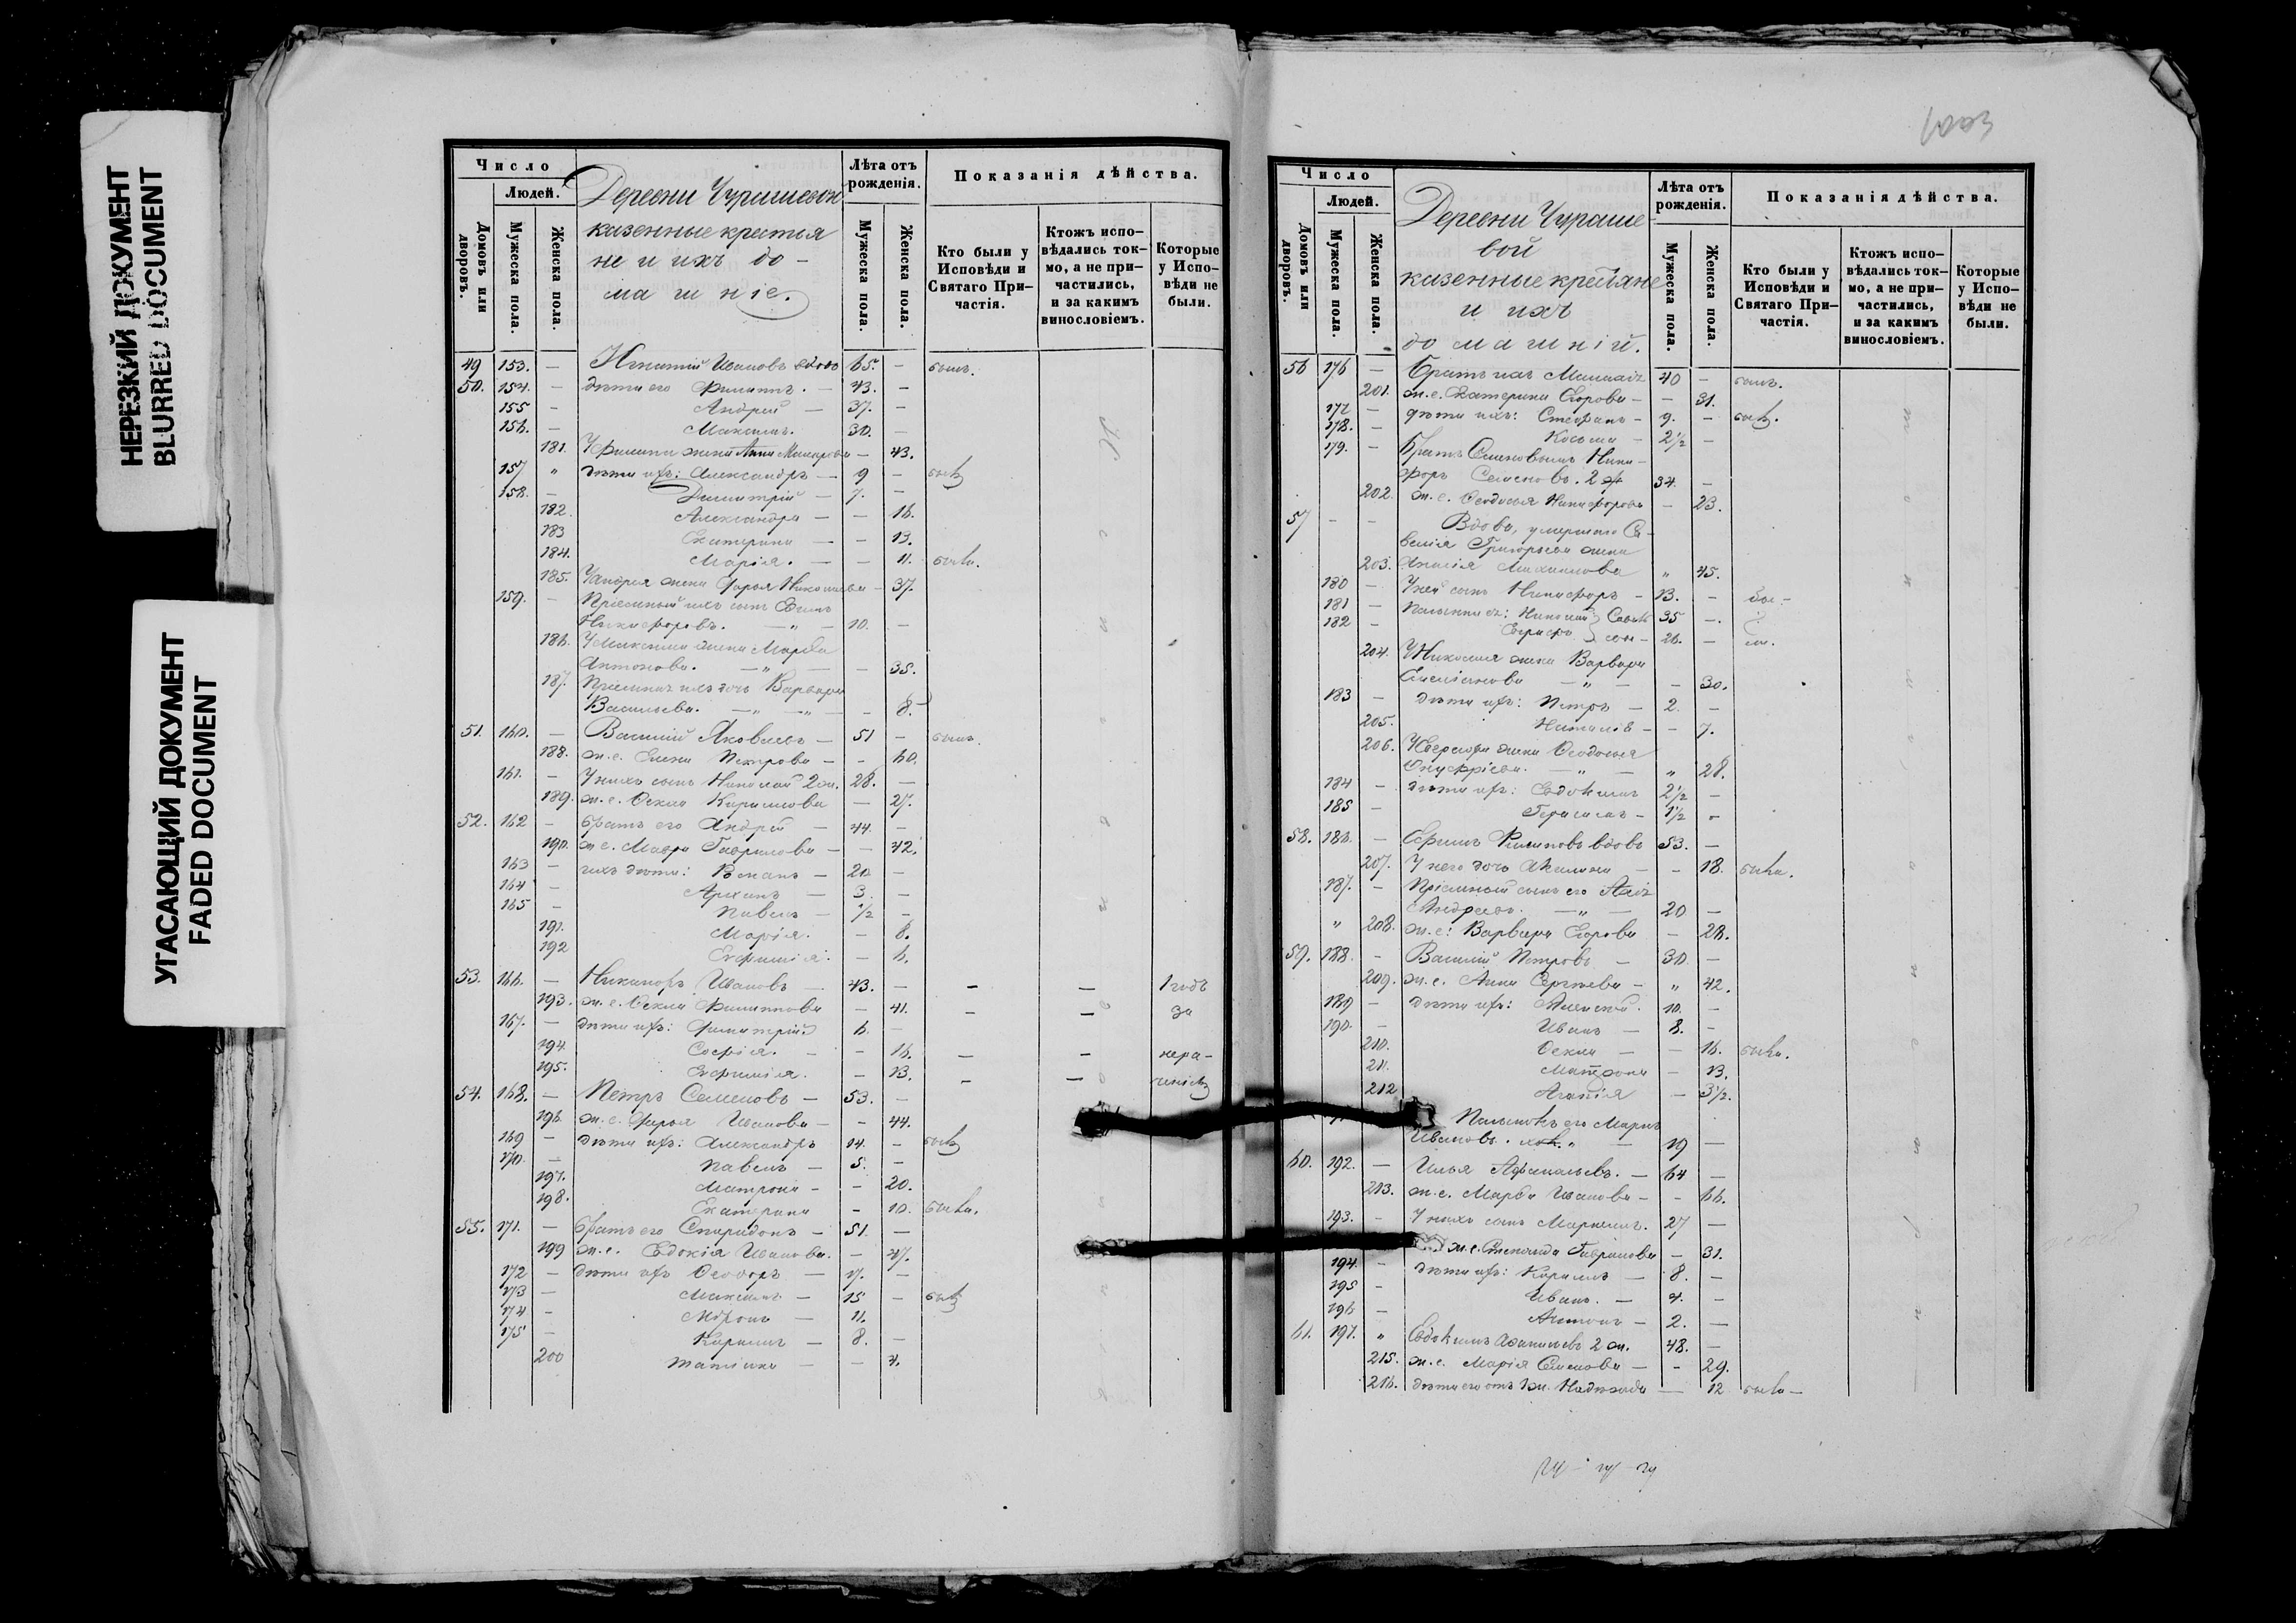 НЕРЕЗКИЙ ДОКУМЕНТ
BLURRED DOCUMENT
УГАСАЮЩИЙ ДОКУМЕНТ
FADED DOCUMENT
Число
Людей.
Домовъ или дворовъ.
Мужеска пола.
Женска пола.
Деревни Чурашевой
казенные крестья
не и ихъ до-
машніе.
Лѣта отъ рожденія.
Мужеска пола.
Женска пола.
Показанія дѣйства.
Кто были у Исповѣди и Святаго При-частія.
Ктожъ испо-вѣдались ток-мо, а не при-частились, и за какимъ винословіемъ.
Которые у Испо-вѣди не были.
49 153. — Игнатій Ивановъ вдовъ 65. — былъ.
50. 154. — дѣти его Филиппъ. — 43. —
155 — Андрей — 37. —
156. — Максимъ. 30. —
181. У Филиппа жена Анна Макарова — 43.
157 " дѣти ихъ: Александръ — 9 —
158. — Димитрій — 7. —
182. Александра — — 16.
183 Екатерина — — 13.
184. Марія. — — 11. были.
185. У Андрея жена Дарья Николаева — 37.
159. — Пріемный ихъ сынъ
Никифоровъ. — " — 10. —
186. У Максима жена Марфа
Антонова. — " — — 35.
187. Пріемная ихъ дочь Варвара
Васильева. — " — " — — 8.
51. 160. — Василій Яковлевъ — 51 — былъ.
188. ж. е. Елена Петрова — — 60.
161. — У нихъ сынъ Николай 2 ж. 28. —
189. ж. е. Ѳекла Кириллова — 27.
52. 162 — братъ его Андрей — 44. —
190. ж. е. Мавра Гаврилова — — 42.
163 — ихъ дѣти: Романъ — 20 —
164 — — 3. —
165 — Павелъ — ½ —
191. Марія. — 8.
192 Евфимія. — 6.
53. 166. — Никаноръ Ивановъ — 43. — — — 1 годъ
193. ж. е. Ѳекла Филиппова — 41. — — за
167. — дѣти ихъ: Димитрій 6. —
194. Софія. — — 16. — — нера-
195. Евфимія. — 13. — —
54. 168. — Петръ Семеновъ — 53. —
196. ж. е. Дарья Иванова — — 44.
169 — дѣти ихъ: Александръ 14. —
170. — Павелъ — 5. —
197. Матрона — — 20.
198. Екатерина — 10. были.
55. 171. — братъ его Спиридонъ — 51. —
199 ж. е. Евдокія Иванова. — 47.
172 — дѣти ихъ Ѳеодоръ — 17. —
173 — Максимъ — 15 —
174 — — 11.
175 — Кириллъ — 8. —
200 Татіана — — 4.
Число
Людей.
Домовъ или дворовъ.
Мужеска пола.
Женска пола.
Деревни Чураше
вой
казенные крестьяне
и ихъ
домашній.
Лѣта отъ рожденія.
Мужеска пола.
Женска пола.
Показанія дѣйства.
Кто были у Исповѣди и Святаго При-частія.
Ктожъ испо-вѣдались ток-мо, а не при-частились, и за какимъ винословіемъ.
Которые у Испо-вѣди не были.
56 176 — Братъ ихъ 40 — былъ.
201. ж. е. Екатерина Егорова — — 31.
177 — дѣти ихъ: Стефанъ — 9. —
178. — Косьма — 2½ —
179. — Братъ Семеновымъ Ники-
форъ Семеновъ. 2 ж 34. —
202. ж. е. Ѳеодосья Никифорова — 23.
57 — — Вдова, умершаго Са-
велія Григорьева жена
203. Михайлова " 45.
180 — У ней сынъ Никифоръ — 13. —
181 — пасынки ея: Николай 35 —
182 — 26. —
204. У Николая жена Варвара
Емеліанова — " — — 30.
183 — дѣти ихъ: Петръ — 2. —
205. Наталія — — 7.
206. жена Ѳеодосья
Онуфріева. — " — " 28.
184 — дѣти ихъ: Евдокимъ 2½ —
185 — Герасимъ — 1½ —
58. 186. — Ефимъ Филиповъ вдовъ 53. —
207. У него дочь Акилина — — 18. была.
187. — Пріемный сынъ его
Андреевъ. — " — 20 —
" 208. ж. е: Варвара Егорова — 28.
59. 188. — Василій Петровъ — 30 —
209. ж. е. Анна Сергѣева — " 42.
189 — дѣти ихъ: Алексѣй. 10. —
190. — Иванъ — 8. —
210. Ѳекла — — 16. была.
211. Матрона — 13.
212 Агапія — 3½.
Пасынокъ его Маркъ
Ивановъ. " — 19 —
60. 192. — Илья Афанасьевъ. — 64 —
213. ж. е. Марфа Иванова — — 66.
193. — У нихъ сынъ 27 —
ж. е. Степанида Гаврилова — 31.
194. — дѣти ихъ: Кириллъ — 8. —
195 — Иванъ. — 4. —
196 — Антонъ — 2. —
61. 197. " Евдокимъ Афанасьевъ 2 ж. 48. —
215. ж. е. Марія Семенова — — 29.
216. дѣти его отъ 1 ж. Надежда — 12 была —